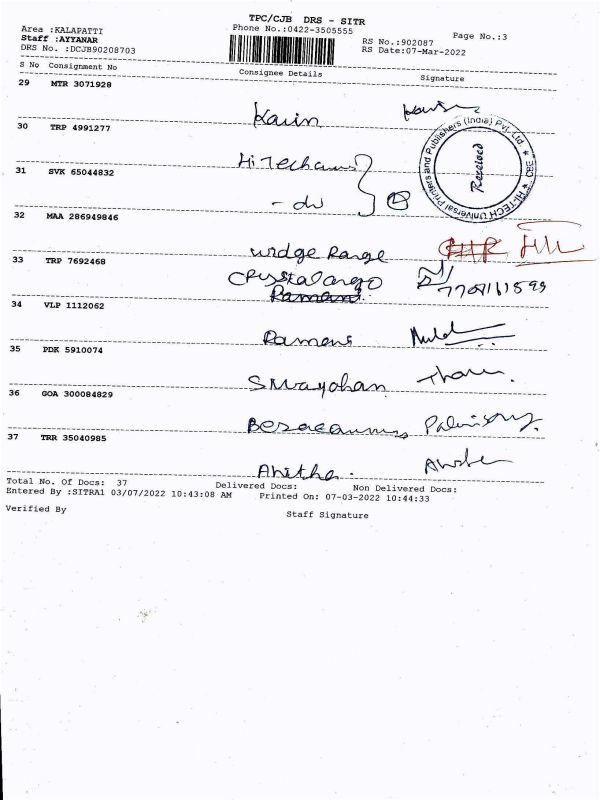 TPC/CJB DRS - SITR
Area :KALAPATTI
Phone No.:0422-3505555
Page No.:3
Staff :AYYANAR
RS No.:902087
DRS No. :DCJB90208703
RS Date:07-Mar-2022
S No Consignment No Consignee Details Signature
29 MTR 3071928
Kavin
30 TRP 4991277
31 SVK 65044832
- do
Hi-TECH Universal Printers and Publishers (India) Pvt. Ltd.
Received
32 MAA 286949846
33 TRP 7692468
7708161599
34 VLP 1112062
Ramani
35 PDK 5910074
36 GOA 300084829
37 TRR 35040985
Anitha.
Total No. Of Docs: 37 Delivered Docs: Non Delivered Docs:
Entered By :SITRA1 03/07/2022 10:43:08 AM Printed On: 07-03-2022 10:44:33
Verified By
Staff Signature